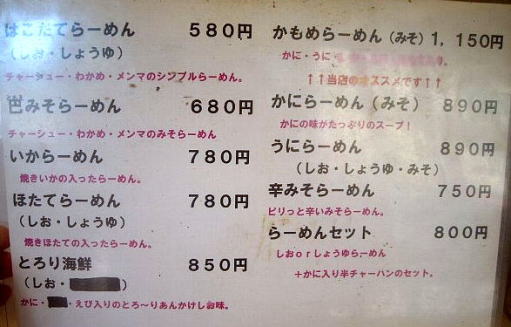 はこだてらーめん 580円
(しお・しょうゆ)
チャーシュー・わかめ・メンマのシンプルらーめん。
みそらーめん 680円
チャーシュー・わかめ・メンマのみそらーめん
いからーめん 780円
焼きいかの入ったらーめん。
ほたてらーめん 780円
(しお・しょうゆ)
焼きほたての入ったらーめん。
とろり海鮮 850円
(しお・
かに・ ・えび入りのとろ〜りあんかけしお味。
かもめらーめん(みそ) 1,150円
かに・うに
↑↑当店のオススメです↑↑
かにらーめん(みそ) 890円
かにの味がたっぷりのスープ!
うにらーめん 890円
(しお・しょうゆ・みそ)
辛みそらーめん 750円
ピリっと辛いみそらーめん。
らーめんセット 800円
しおorしょうゆらーめん
+かに入り半チャーハンのセット。